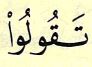 تَقُولُوا۟